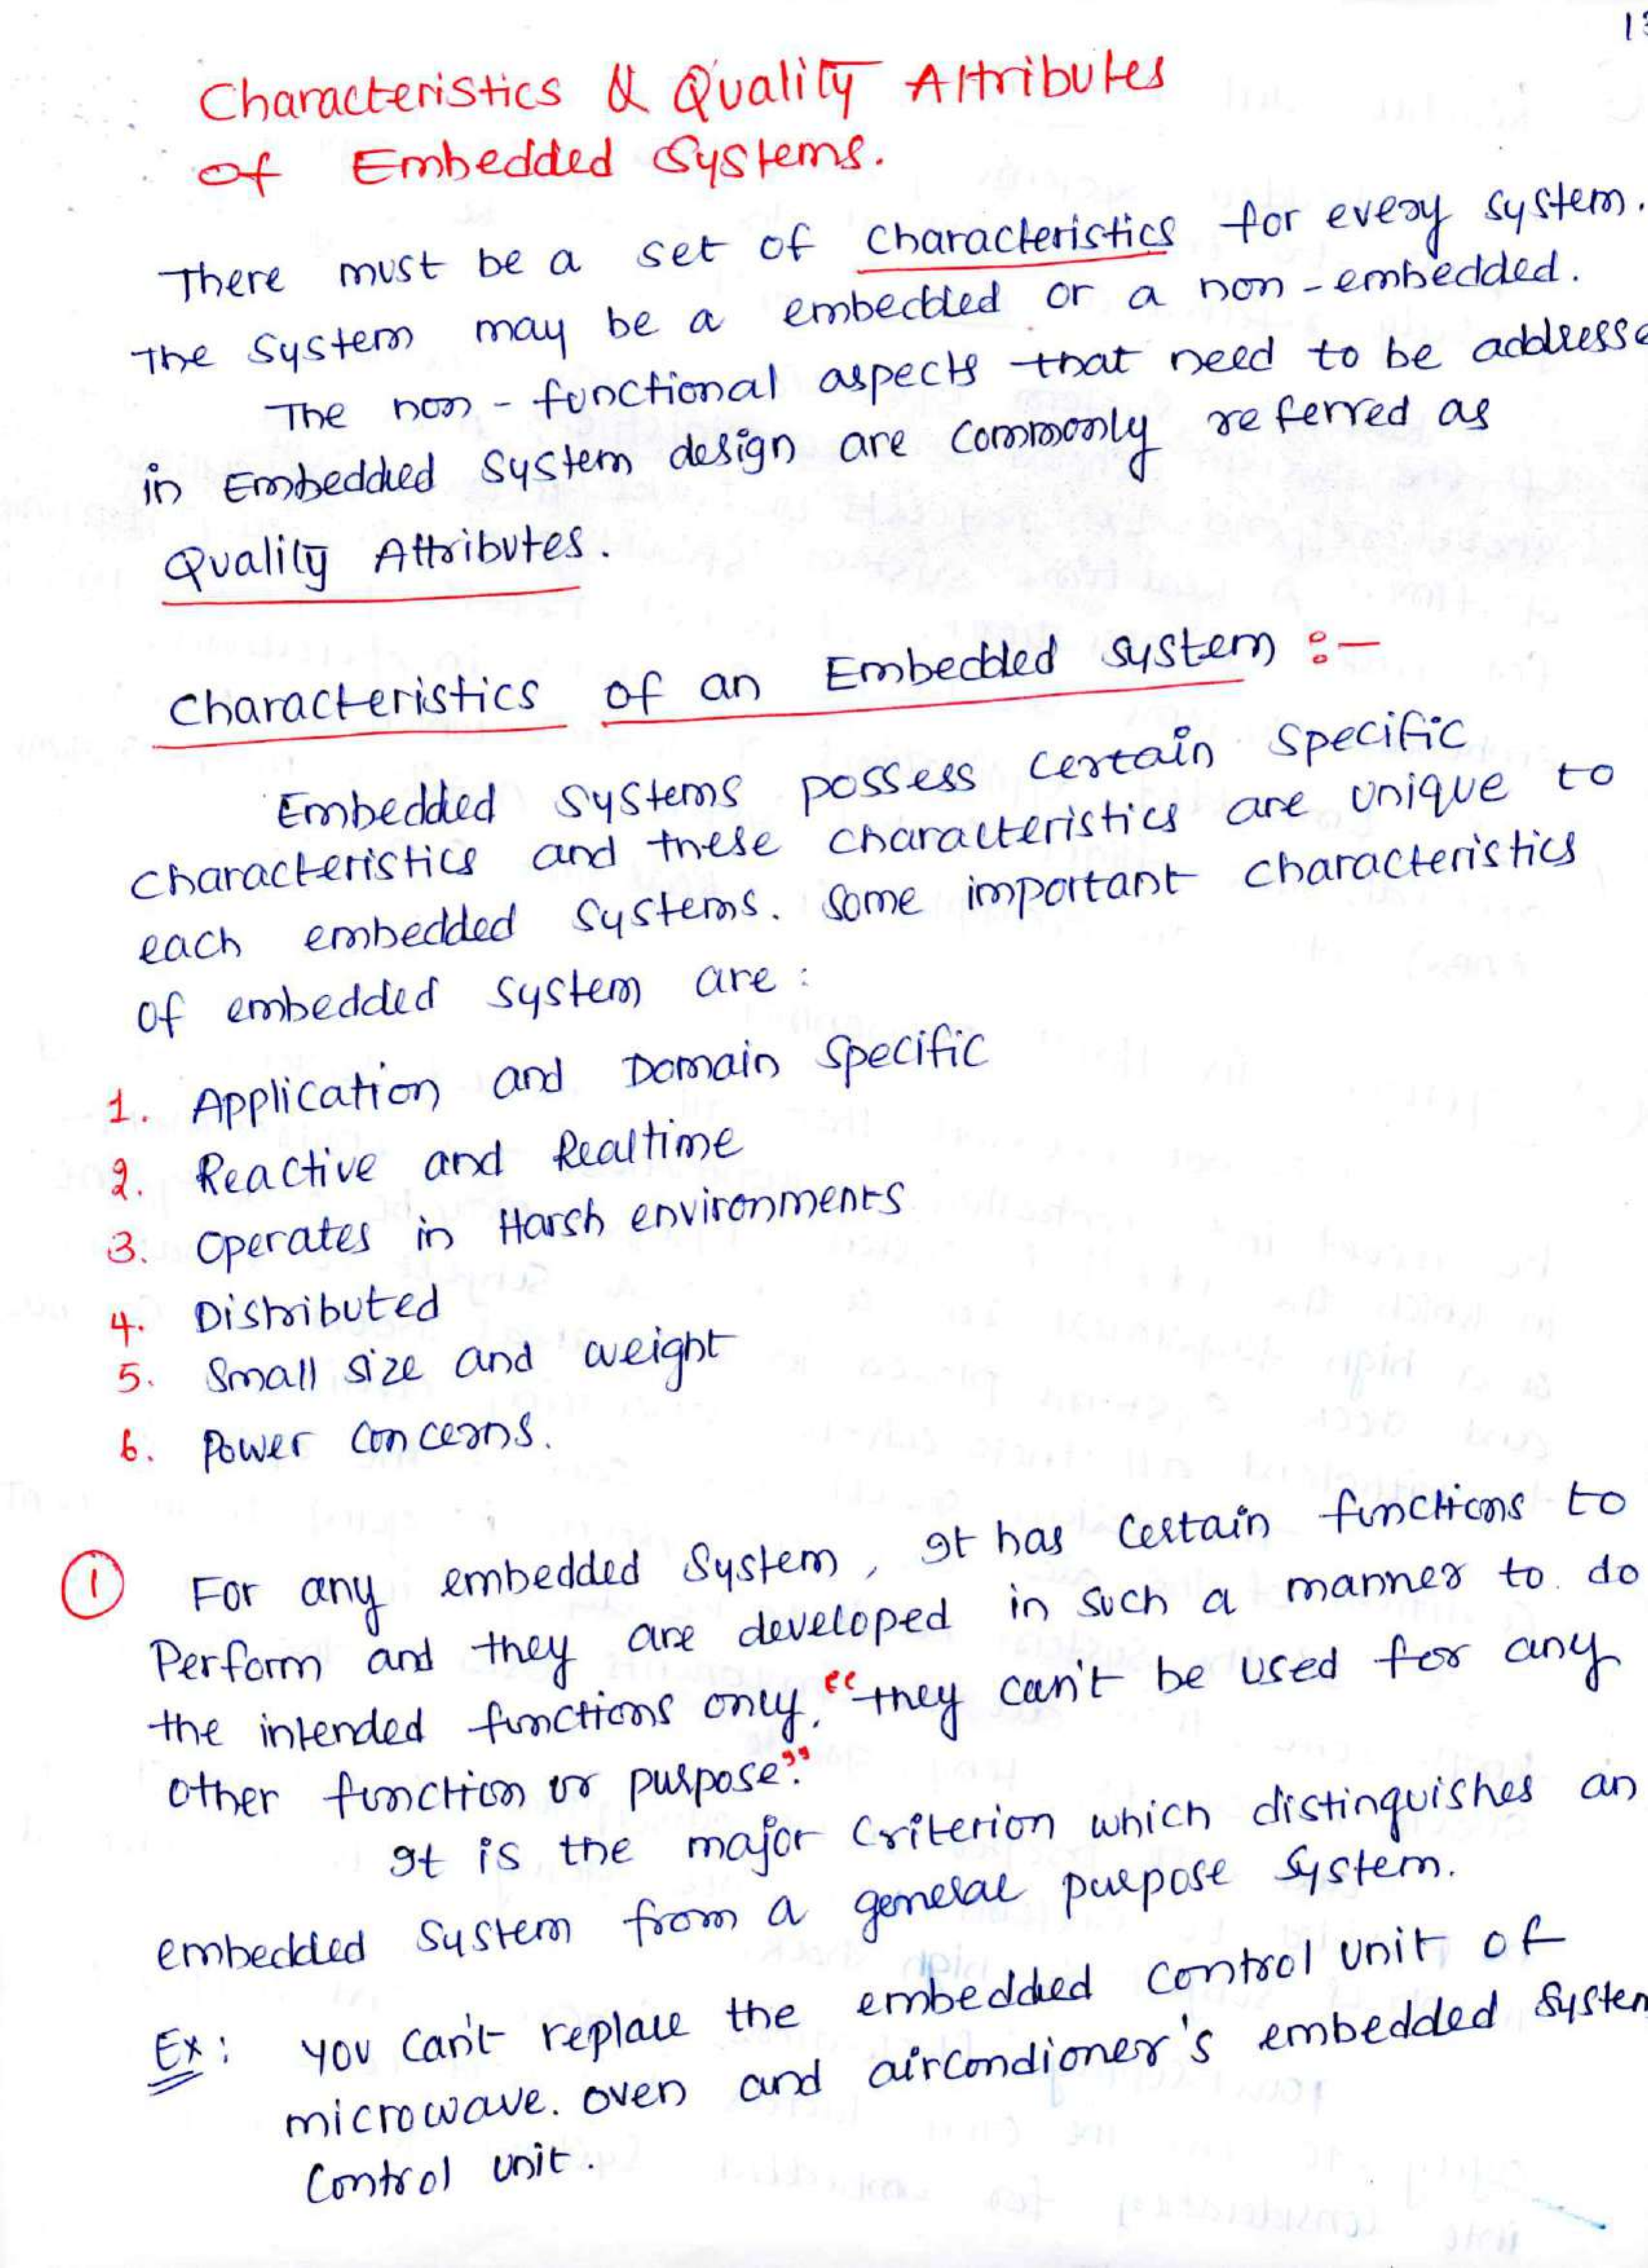 13
Characteristics & Quality Attributes
of Embedded Systems.
There must be a set of characteristics for every system.
The system may be a embedded or a non-embedded.
The non-functional aspects that need to be addresse
in Embedded system design are commonly referred as
Quality Attributes.
Characteristics of an Embedded system :-
Embedded systems possess certain specific
characteristics and these characteristics are unique to
each embedded systems. Some important characteristics
of embedded system are :
1. Application and Domain Specific
2. Reactive and Realtime
3. Operates in Harsh environments
4. Distributed
5. Small size and weight
6. Power concerns.
1 For any embedded system, It has certain functions to
Perform and they are developed in such a manner to do
the intended functions only. "they can't be used for any
other function or purpose."
It is the major criterion which distinguishes an
embedded system from a general purpose system.
Ex: you can't replace the embedded control unit of
microwave. oven and aircondioner's embedded system
Control unit.